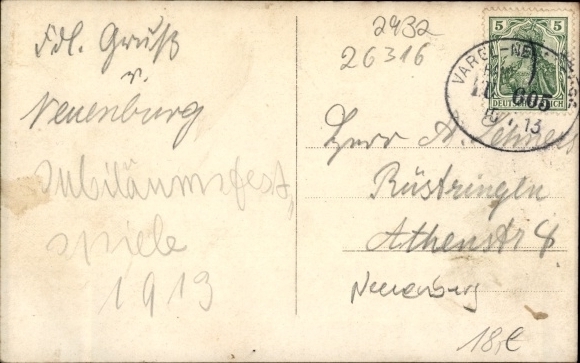 Frdl. Gruß
v.
Neuenburg
Jubiläumsfest
spiele
1913
2932
26316
5 5
DEUTSCHES REICH
VAREL-NE
605
13
Herrn A.
Rüstringen
Athenstr 8
Neuenburg
18,€